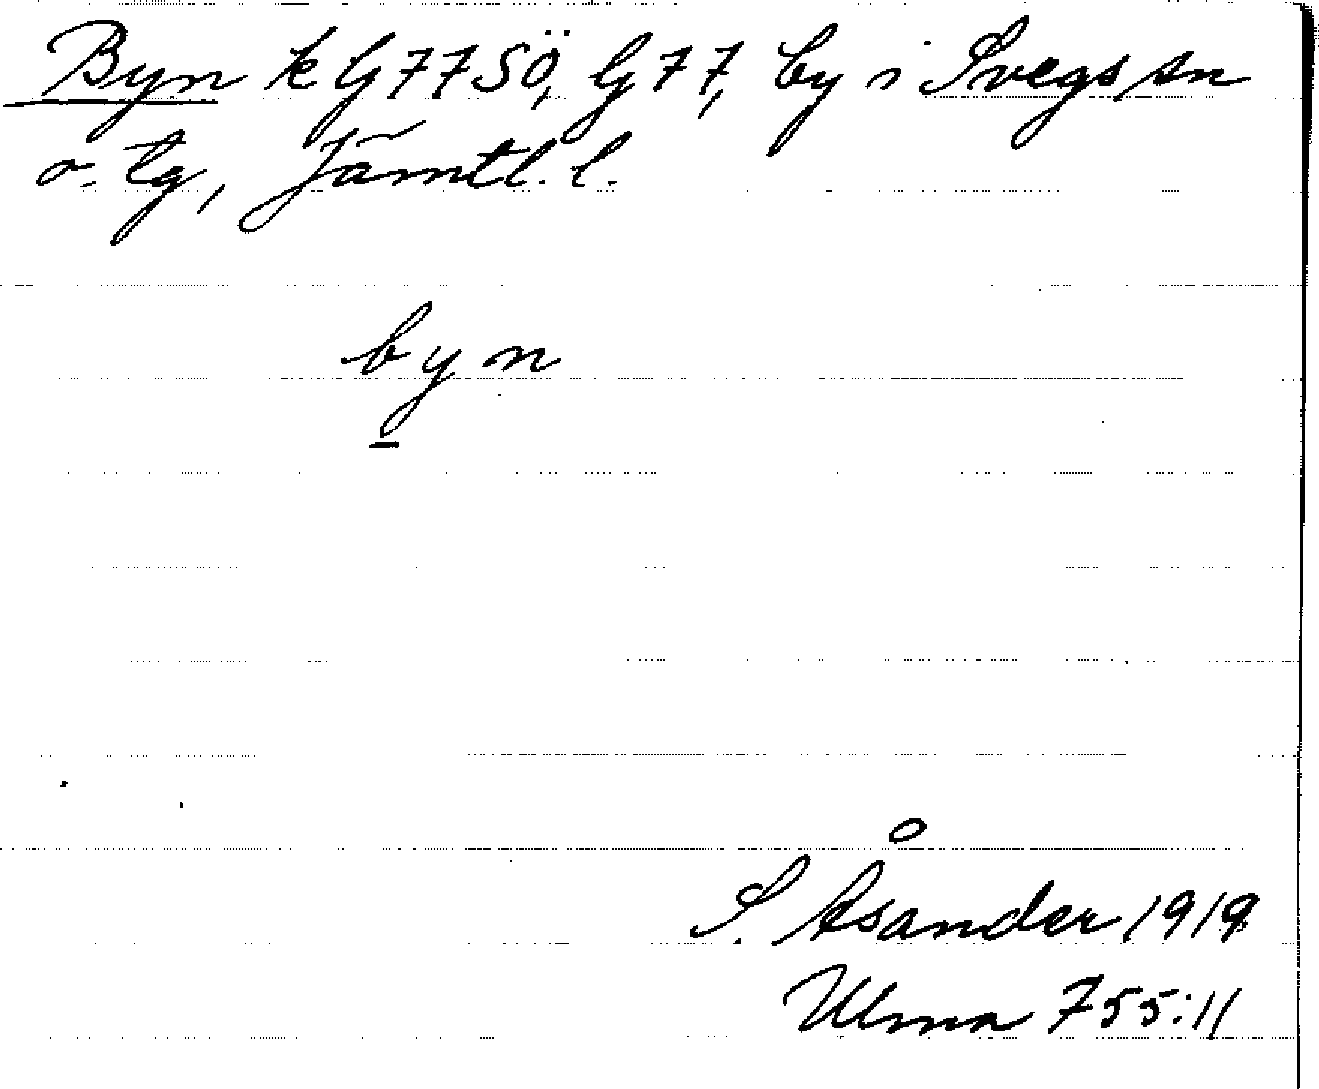 Byn k G 77 SÖ, G 77, by i Svegs sn
o. tg, Jämtl. l.
byn
S. Åsander 1919
Ulma 755:11